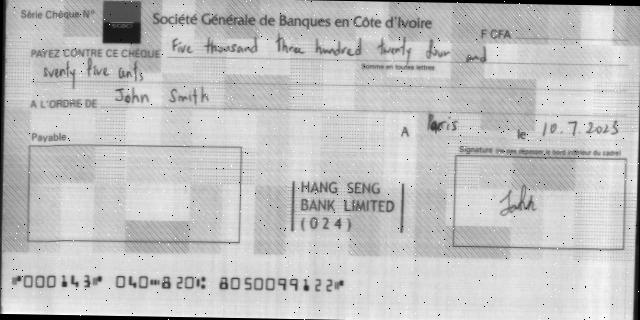 Série Chèque N°
Société Générale de Banques en Côte d'Ivoire
F CFA
PAYEZ CONTRE CE CHEQUE Five thousand three hundred twenty four and
Somme en toutes lettres
sventy five cents
A L'ORDRE DE John Smith
A Paris le 10.7.2025
Payable
Signature (ne pas dépasser le bord intérieur du cadre)
HANG SENG
BANK LIMITED
(024)
John
⑈000143⑈ 040⑉820⑆ 8050099122⑈